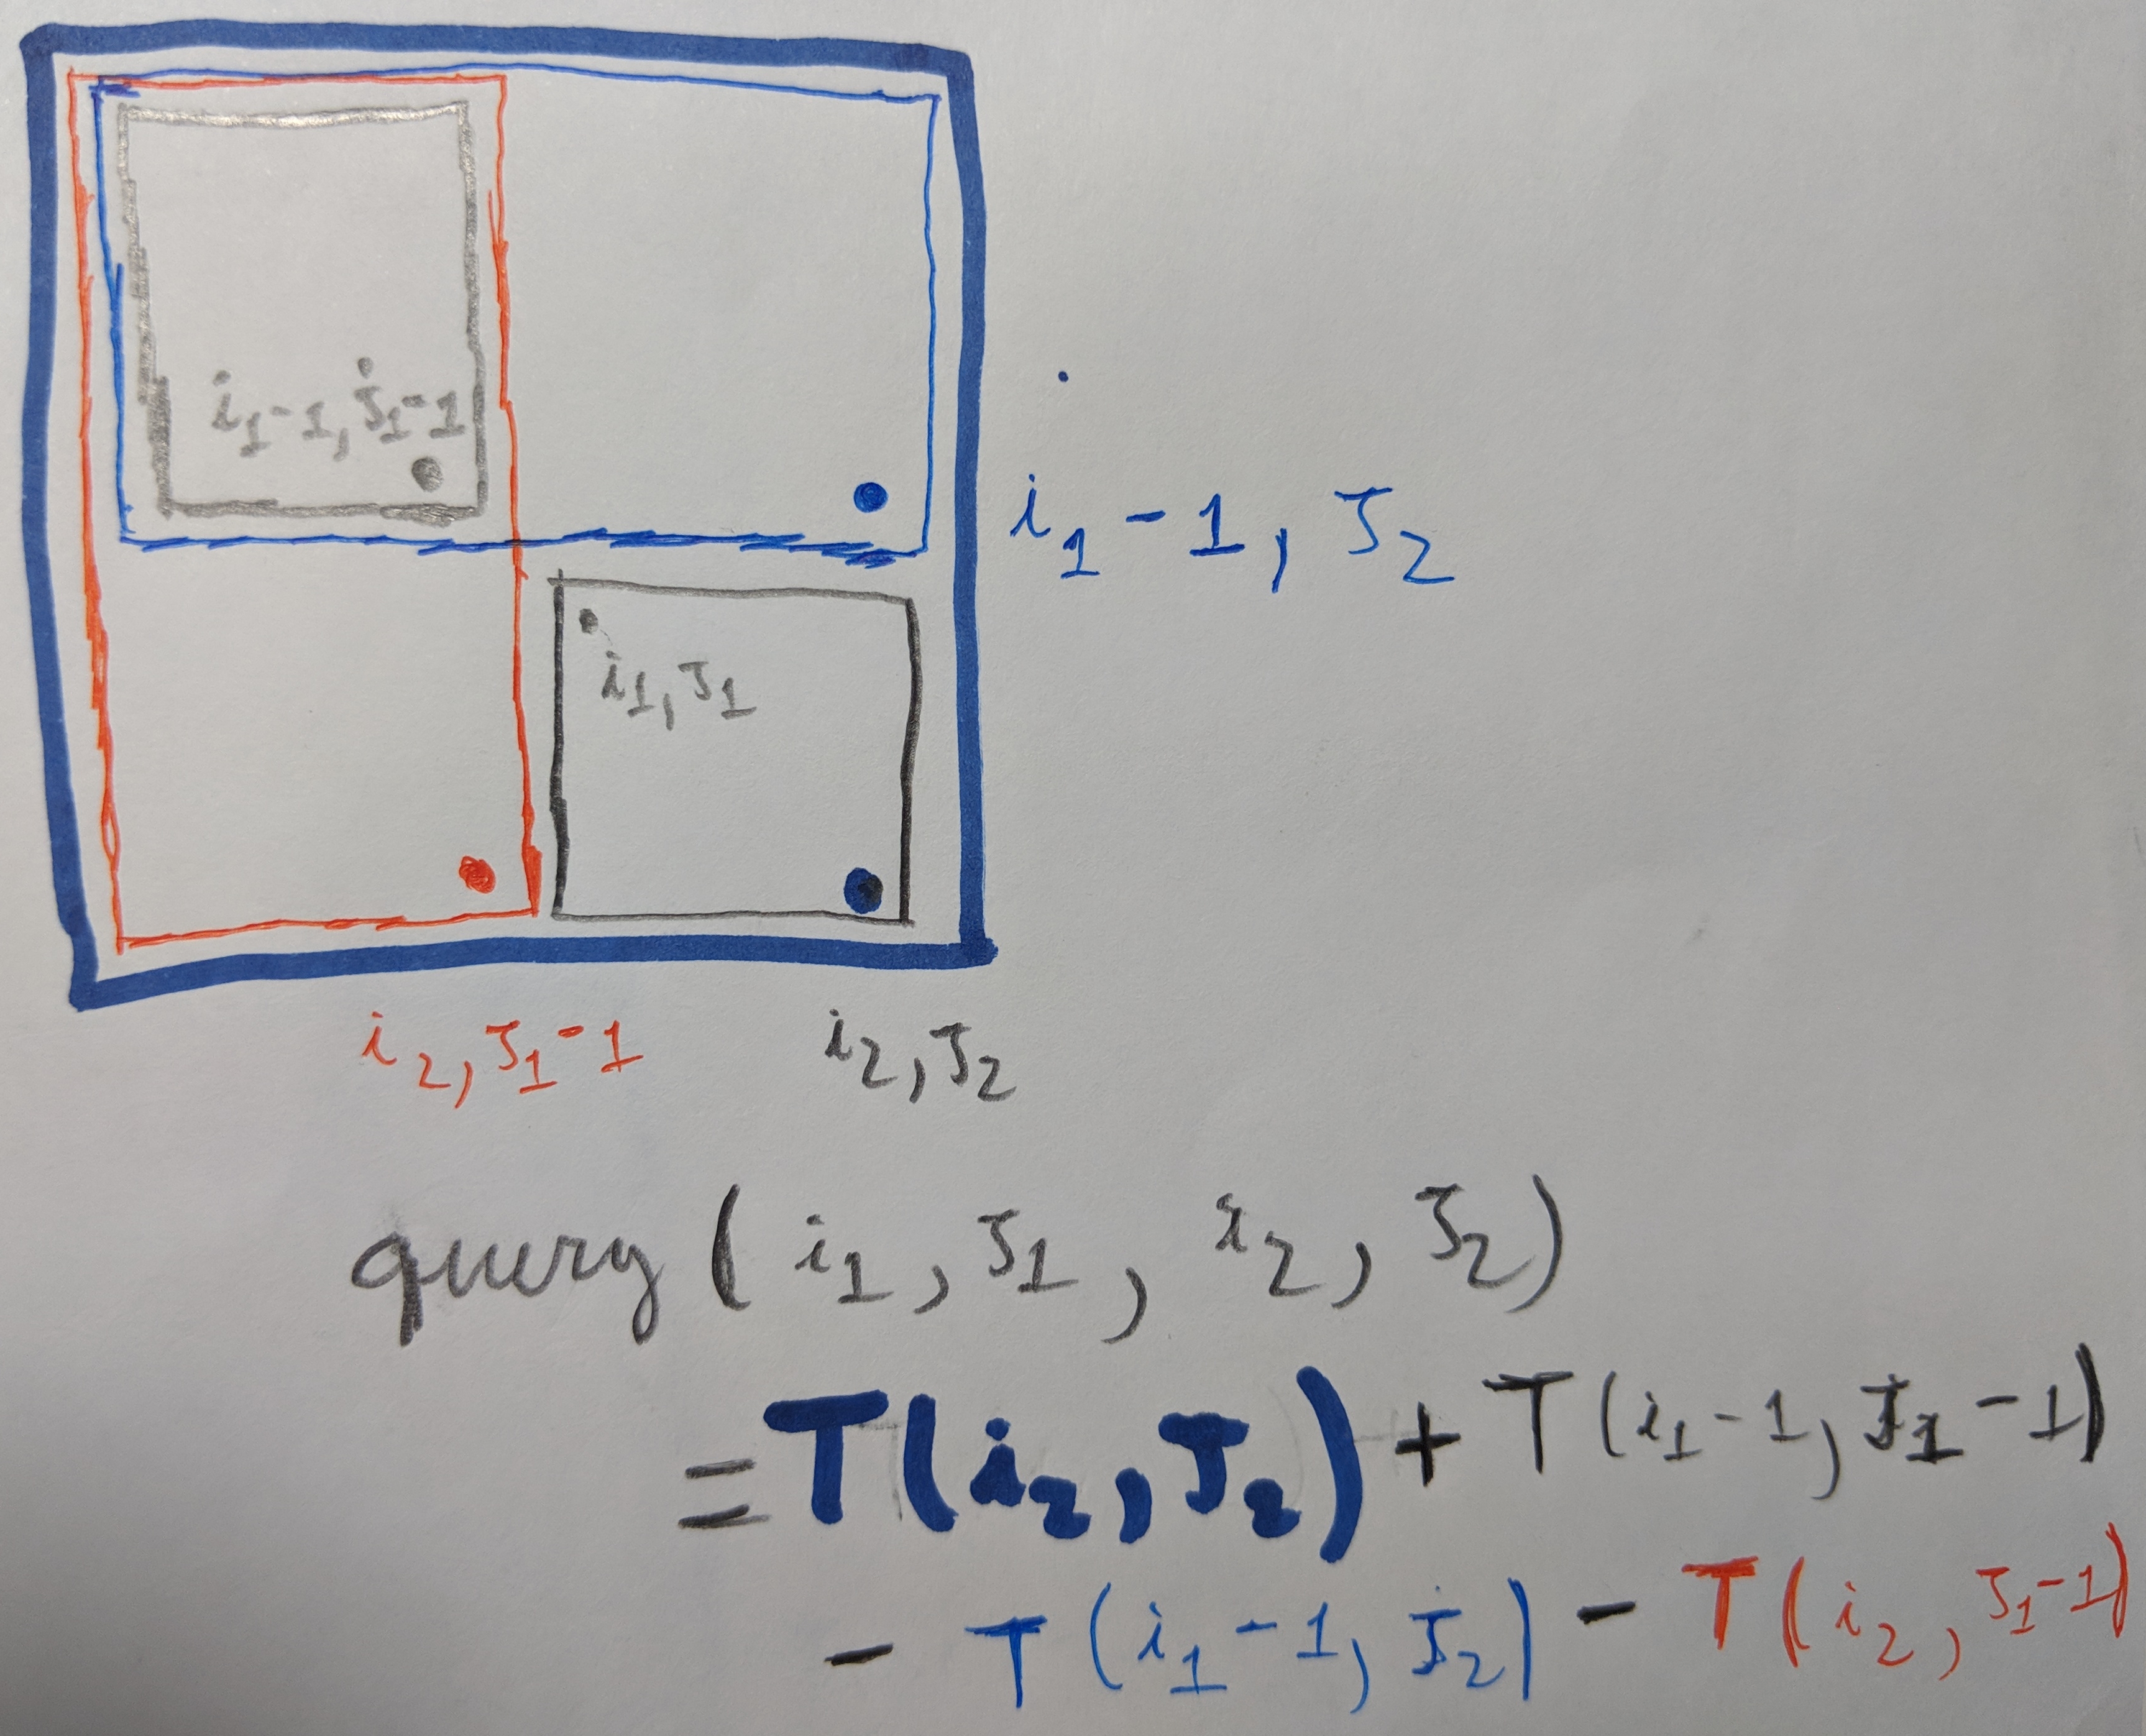 i₁-1, J₁-1
i₁-1, J₂
i₁, J₁
i₂, J₁-1
i₂, J₂
query(i₁, J₁, i₂, J₂)
=T(i₂, J₂) + T(i₁-1, J₁-1)
- T(i₁-1, J₂) - T(i₂, J₁-1)